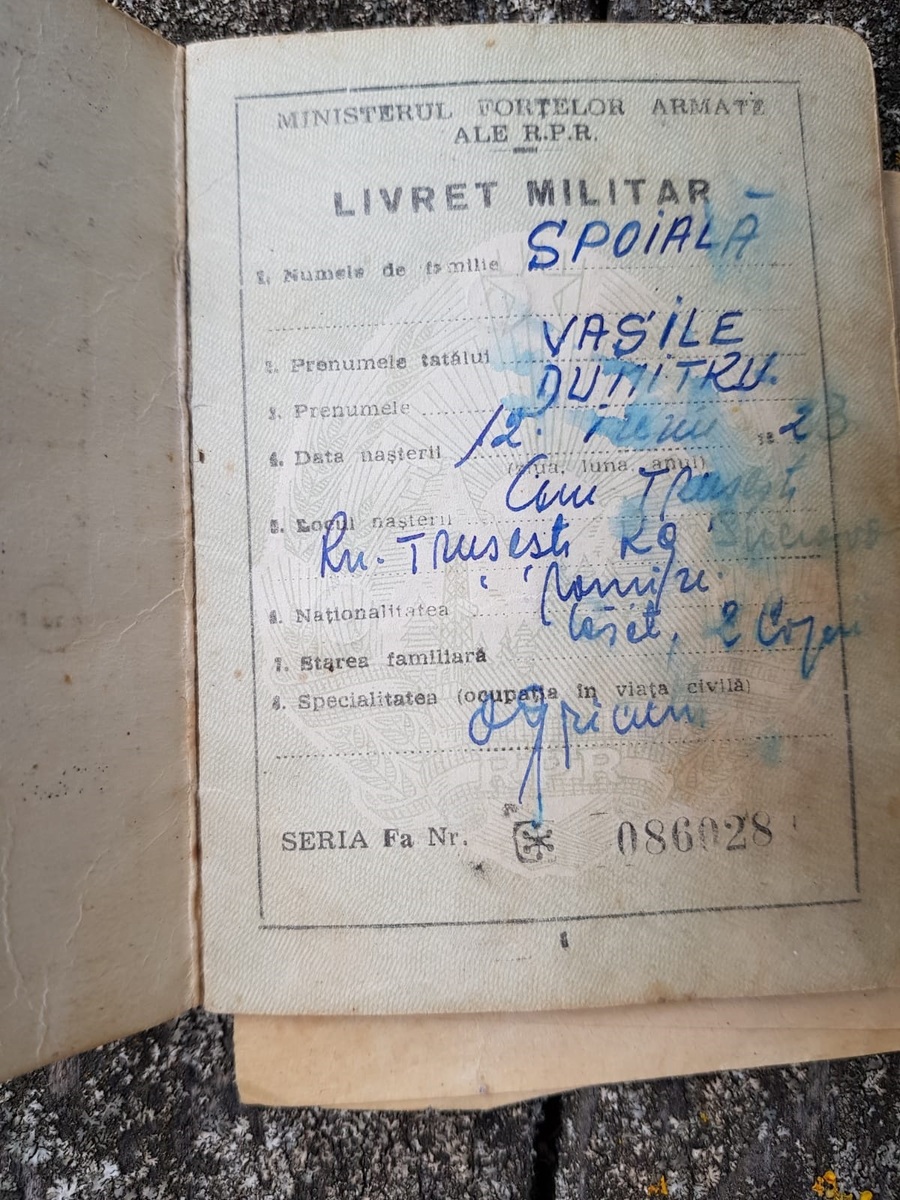 MINISTERUL FORȚELOR ARMATE
ALE R.P.R.
LIVRET MILITAR
1. Numele de familie SPOIALĂ
2. Prenumele tatălui VASILE
3. Prenumele DUMITRU.
4. Data nașterii 12. 23
(ziua, luna, anul)
5. Locul nașterii Com Trusesti
Rn. Trusesti Rg Suceava
6. Naționalitatea
7. Starea familiară 2 Copii
8. Specialitatea (ocupația în viața civilă)
RPR
SERIA Fa Nr. 086028
1